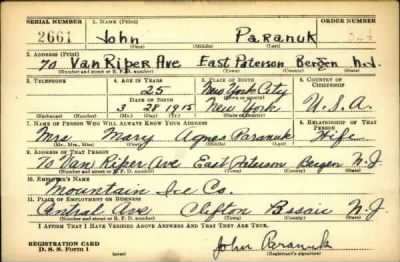 SERIAL NUMBER 1. NAME (Print) ORDER NUMBER
2661 John Paranuk
(First) (Middle) (Last)
2. ADDRESS (Print)
70 Van Riper Ave East Paterson Bergen N.J.
(Number and street or R. F. D. number) (Town) (County) (State)
3. TELEPHONE 4. AGE IN YEARS 5. PLACE OF BIRTH 6. COUNTRY OF CITIZENSHIP
25 New York City
DATE OF BIRTH (Town or county)
3 28 1915 New York U.S.A.
(Exchange) (No.) (Mo.) (Day) (Yr.) (State or country)
7. NAME OF PERSON WHO WILL ALWAYS KNOW YOUR ADDRESS 8. RELATIONSHIP OF THAT PERSON
Mrs Mary Agnes Paranuk Wife
(Mr., Mrs., Miss) (First) (Middle) (Last)
9. ADDRESS OF THAT PERSON
70 Van Riper Ave East Paterson Bergen N.J.
(Number and street or R. F. D. number) (Town) (County) (State)
10. EMPLOYER'S NAME
Mountain Ice Co.
11. PLACE OF EMPLOYMENT OR BUSINESS
Central Ave Clifton Passaic N.J.
(Number and street or R. F. D. number) (Town) (County) (State)
I AFFIRM THAT I HAVE VERIFIED ABOVE ANSWERS AND THAT THEY ARE TRUE.
REGISTRATION CARD
D. S. S. Form 1
John Paranuk